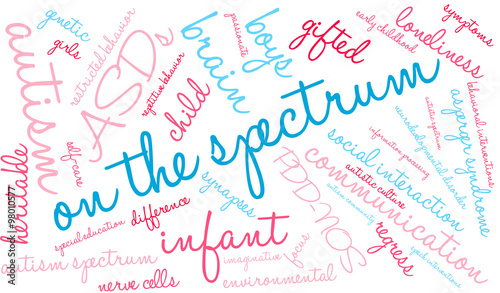 genetic
girls
autism
restricted behavior
ASDs
repetitive behavior
child
brain
passionate
boys
gifted
early childhood
loneliness
symptoms
behavioral interventions
asperger syndrome
autistic spectrum
neurodevelopmental disorder
information processing
on the spectrum
heritable
self-care
special education
difference
synapses
PDD-NOS
social interaction
communication
autistic culture
autism community
regress
speech interventions
infant
autism spectrum
nerve cells
imaginative
focus
environmental
Adobe Stock | #98010577